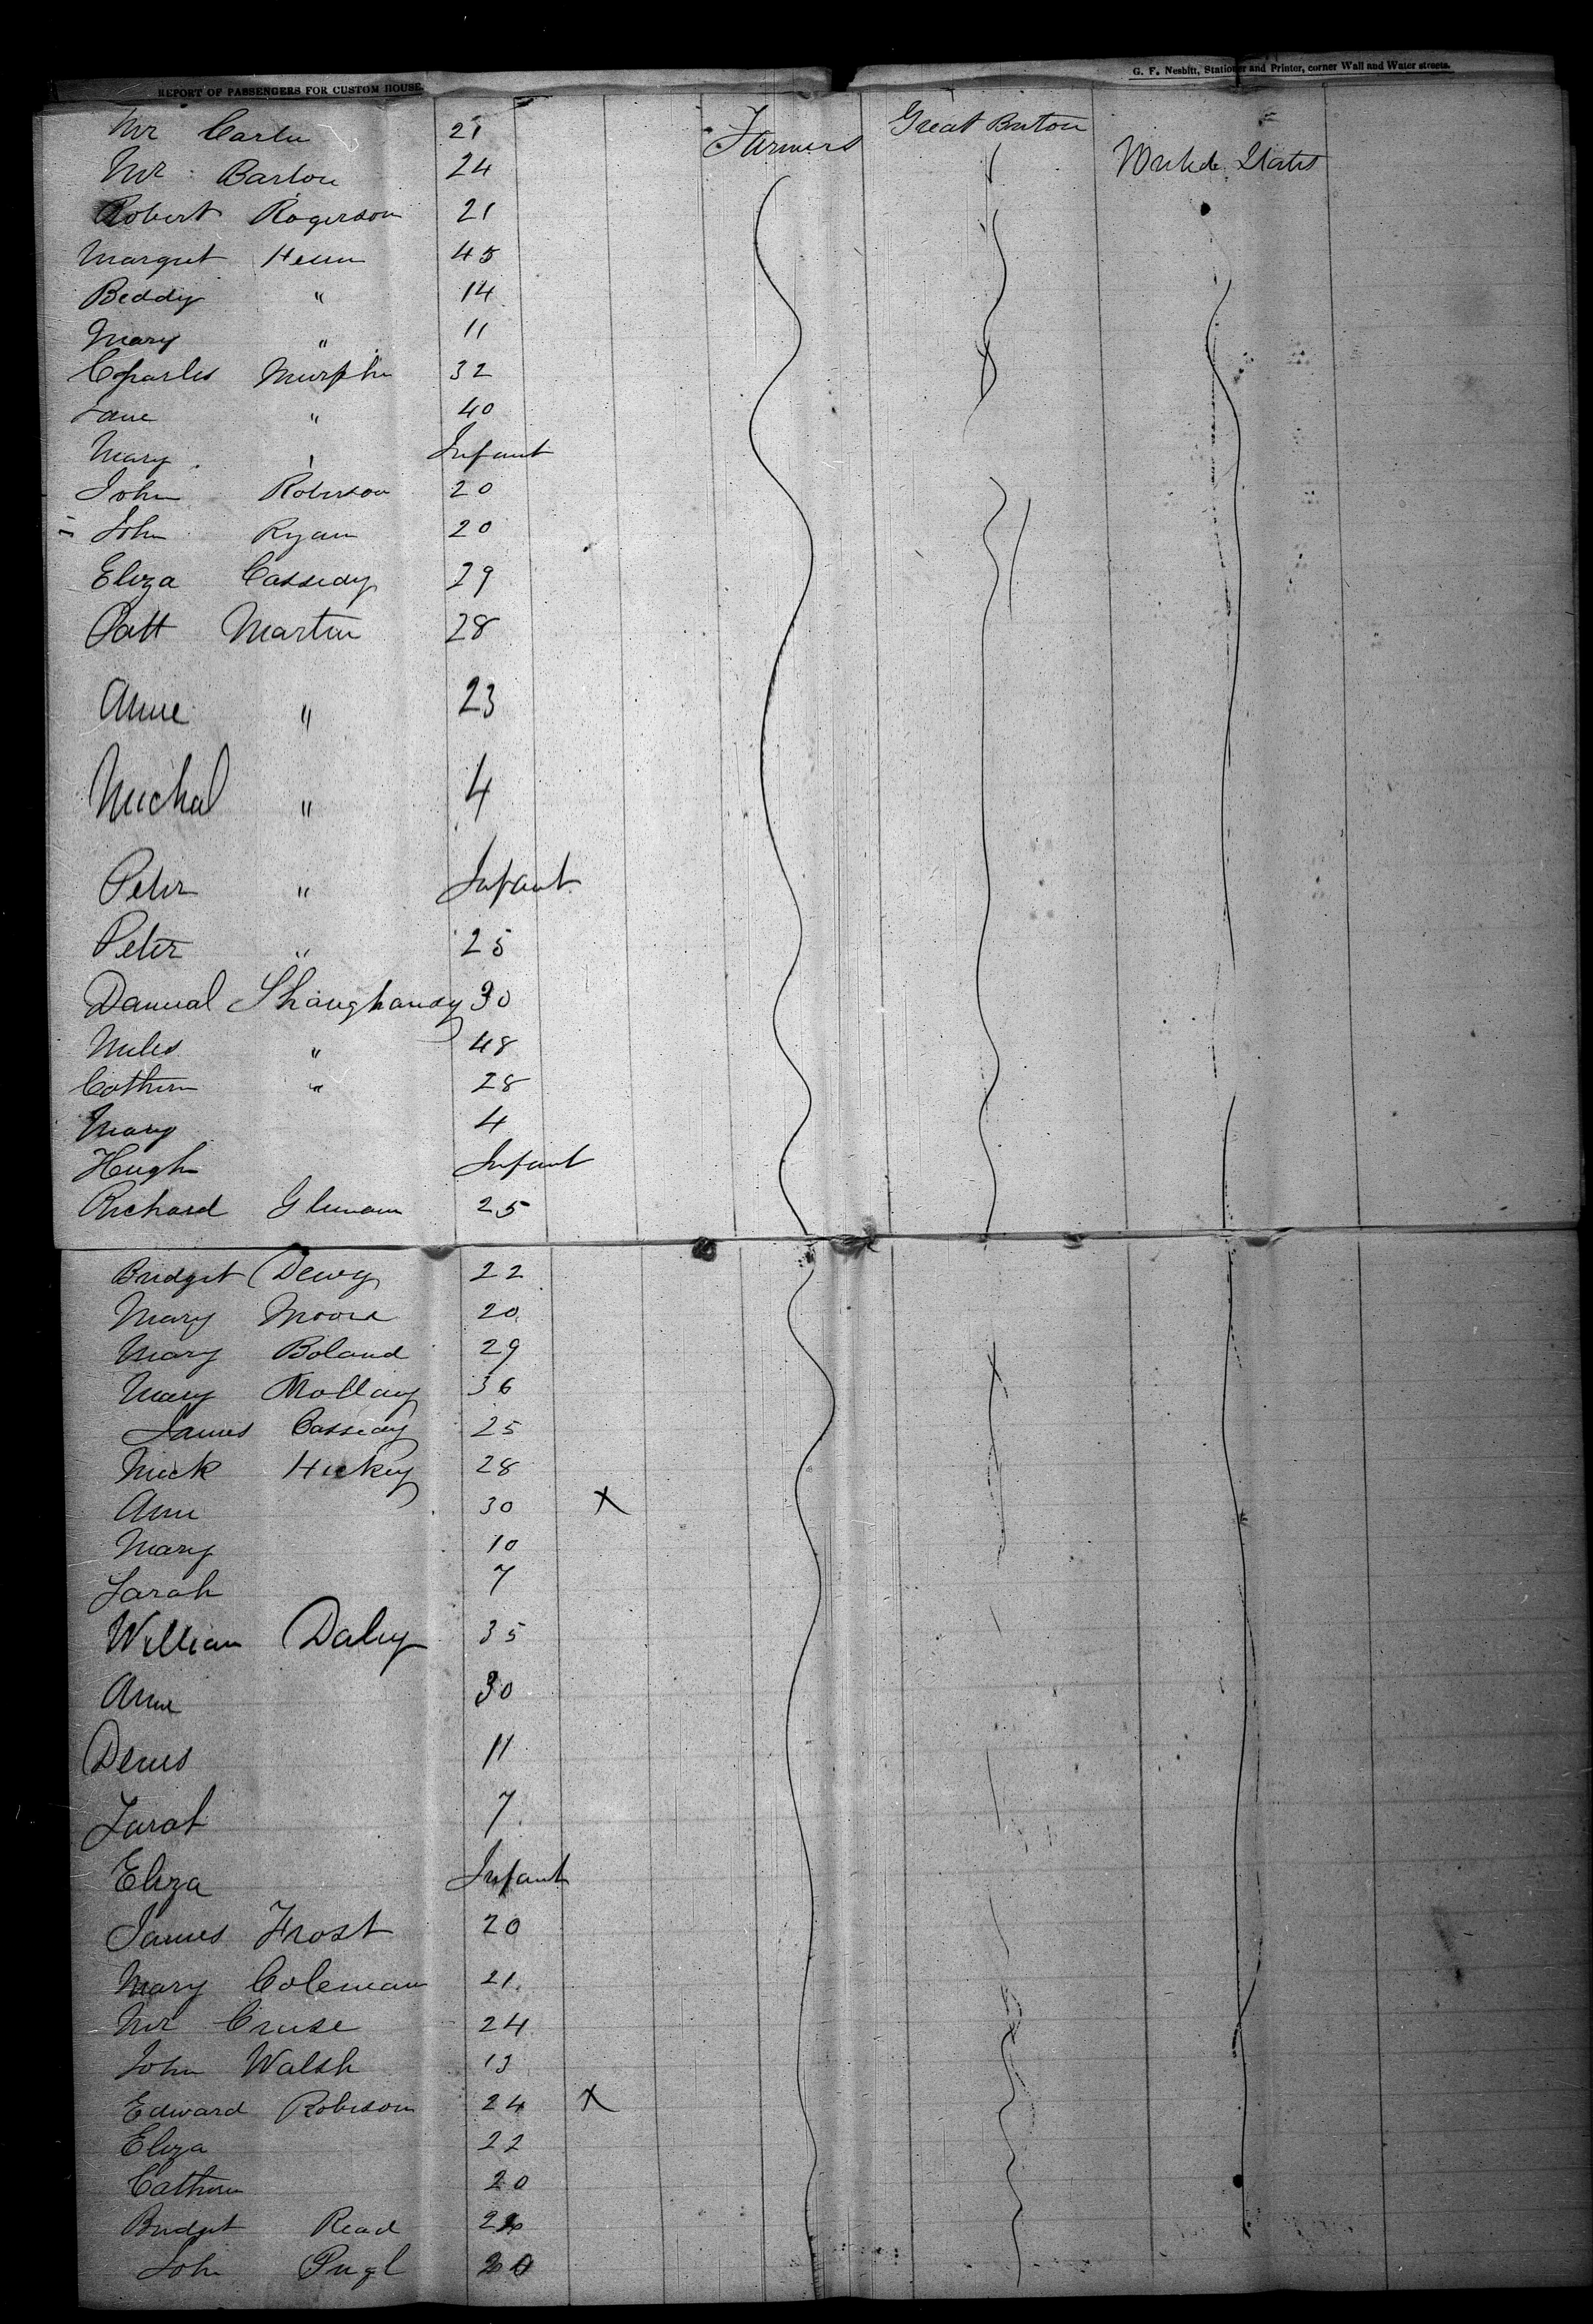 REPORT OF PASSENGERS FOR CUSTOM HOUSE.
G. F. Nesbitt, Stationer and Printer, corner Wall and Water streets.
Mr 21 Farmers Great Britain
Mr Barlow 24 States
Robert Rogerson 21
Margret 45
Biddy " 14
Mary " 11
Charles Murphy 32
Jane " 40
Mary Infant
John Roberson 20
John Ryan 20
Eliza Cassedy 29
Patt Martin 28
Anne " 23
Michal " 4
Peter " Infant
Peter " 25
Danual Shaughansy 30
Miles " 48
Cothern " 28
Mary 4
Hugh Infant
Richard 25
Bridget Dewy 22
Mary Moore 20
Mary Boland 29
Mary Mollay 36
James Cassedy 25
Mick Hickey 28
Ann 30 X
Mary 10
Sarah 7
William Daley 35
Anne 30
Denis 11
Sarah 7
Eliza Infant
James Frost 20
Mary Coleman 21
Mr Cruse 24
John Walsh 13
Edward Robison 24 X
Eliza 22
Cathern 20
Bridget Read
John